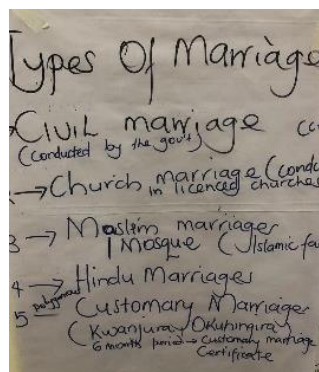 Types Of Marriage
CIVIL marriage
(conducted by the gov't)
→ Church marriage (cond
in licenced churches
3 → Moslem marriages
| Mosque (Islamic fa
4 → Hindu Marriages
5 polygamous Customary Marriages
(Kwanjura, Okuhingira)
6 month period → Customary marriage
Certificate